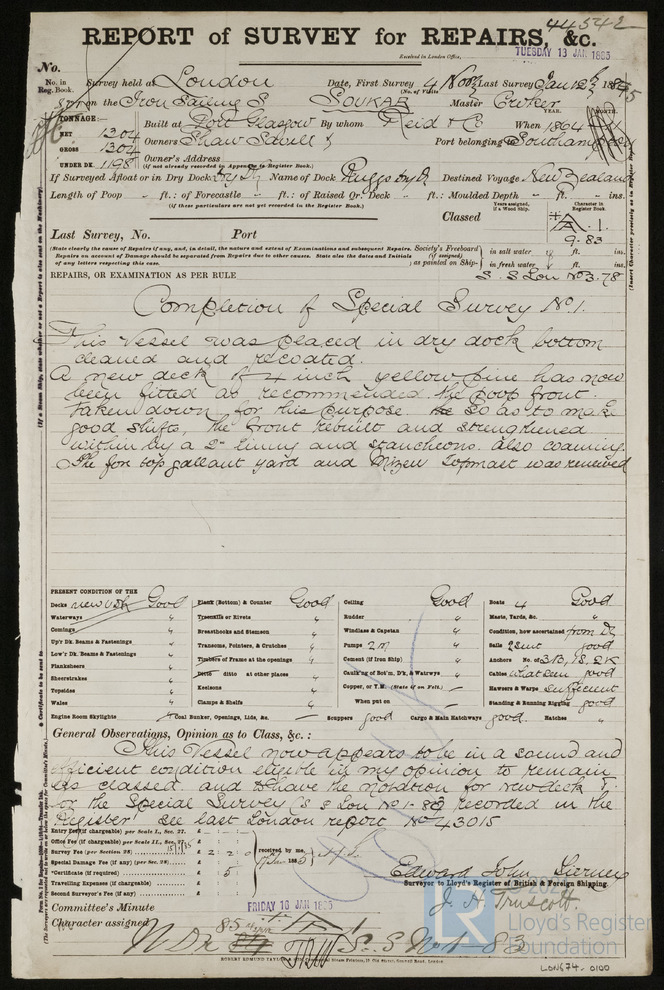 44542
REPORT of SURVEY for REPAIRS, &c.
Received in London Office,
TUESDAY 13 JAN 1885
No.
No. in Reg. Book.
Survey held at London Date, First Survey 4 Novr Last Survey Jan 12th 1885
on the Iron Sailing S SOUKAR Master Croker
TONNAGE:
NET 1304
GROSS 1304
UNDER DK. 1198
Built at Port Glasgow By whom Reid & Co When 1864
YEAR. MONTH.
Owners Shaw Savill & Port belonging to Southampton
Owners' Address
(if not already recorded in Appendix to Register Book.)
If Surveyed Afloat or in Dry Dock Dry Dk Name of Dock Destined Voyage New Zealand
Length of Poop ft.: of Forecastle ft.: of Raised Qr. Deck ft.: Moulded Depth ft. ins.
(if these particulars are not yet recorded in the Register Book.)
Classed
Years assigned, if a Wood Ship.
Character in Register Book.
A. 1.
9. 83
Last Survey, No. Port
(State clearly the cause of Repairs if any, and, in detail, the nature and extent of Examinations and subsequent Repairs. Repairs on account of Damage should be separated from Repairs due to other causes. State also the dates and Initials of any letters respecting this case.
Society's Freeboard (if assigned) as painted on Ship- in salt water ft. ins.
in fresh water ft. ins.
S. S Lon No 3. 78
REPAIRS, OR EXAMINATION AS PER RULE
Completion of Special Survey No. 1.
This Vessel was placed in dry dock bottom
cleaned and recoated.
A new deck of 4 inch yellow pine has now
been fitted as recommended. The poop front
taken down for this purpose. So as to make
good shifts, the front rebuilt and strengthened
within by a 2" lining and stancheons. also coaming.
The fore top gallant yard and Mizen Topmast was renewed
PRESENT CONDITION OF THE
Decks new U Dk Good
Waterways "
Comings "
Up'r Dk. Beams & Fastenings "
Low'r Dk. Beams & Fastenings "
Planksheers "
Sheerstrakes "
Topsides "
Wales "
Engine Room Skylights
Plank (Bottom) & Counter Good
Treenails or Rivets "
Breasthooks and Stemson "
Transoms, Pointers, & Crutches "
Timbers of Frame at the openings "
Ditto ditto at other places "
Keelsons "
Clamps & Shelfs "
Coal Bunker, Openings, Lids, &c.
Ceiling Good
Rudder "
Windlass & Capstan "
Pumps 2 "
Cement (if Iron Ship) "
Caulk'ng of Bot'm, D'k, & Watrwys "
Copper, or Y.M. (State if on Felt.)
When put on
Scuppers good Cargo & Main Hatchways good
Boats 4 Good
Masts, Yards, &c. "
Condition, how ascertained from Dk
Sails 2 suit good
Anchors No. of 3B, 1S, 2K
Cables good
Hawsers & Warps sufficient
Standing & Running Rigging good
Hatches "
General Observations, Opinion as to Class, &c.:
This Vessel now appears to be in a sound and
efficient condition eligible in my opinion to remain
as classed. and to have the notation for New deck &
for the Special Survey S S Lon No 1-83 recorded in the
Register. See last London report No 43015
Entry Fee (if chargeable) per Scale I., Sec. 27. £
Office Fee (if chargeable) per Scale II., Sec. 27. £
Survey Fee (per Section 28) £ 2 . 2 . 0
Special Damage Fee (if any) (per Sec. 28) £
*Certificate (if required) £ 5
Travelling Expenses (if chargeable) £
Second Surveyor's Fee (if any) £
received by me,
1885
Edward John Surney
Surveyor to Lloyd's Register of British & Foreign Shipping.
J. H. Truscott.
Committee's Minute FRIDAY 16 JAN 1885
Character assigned A 1
S. S No 1 - 83
ROBERT EDMUND TAYLOR & Steam Printers, 19 Old Street, Goswell Road, London.
Lloyd's Register
Foundation
LON674-0100